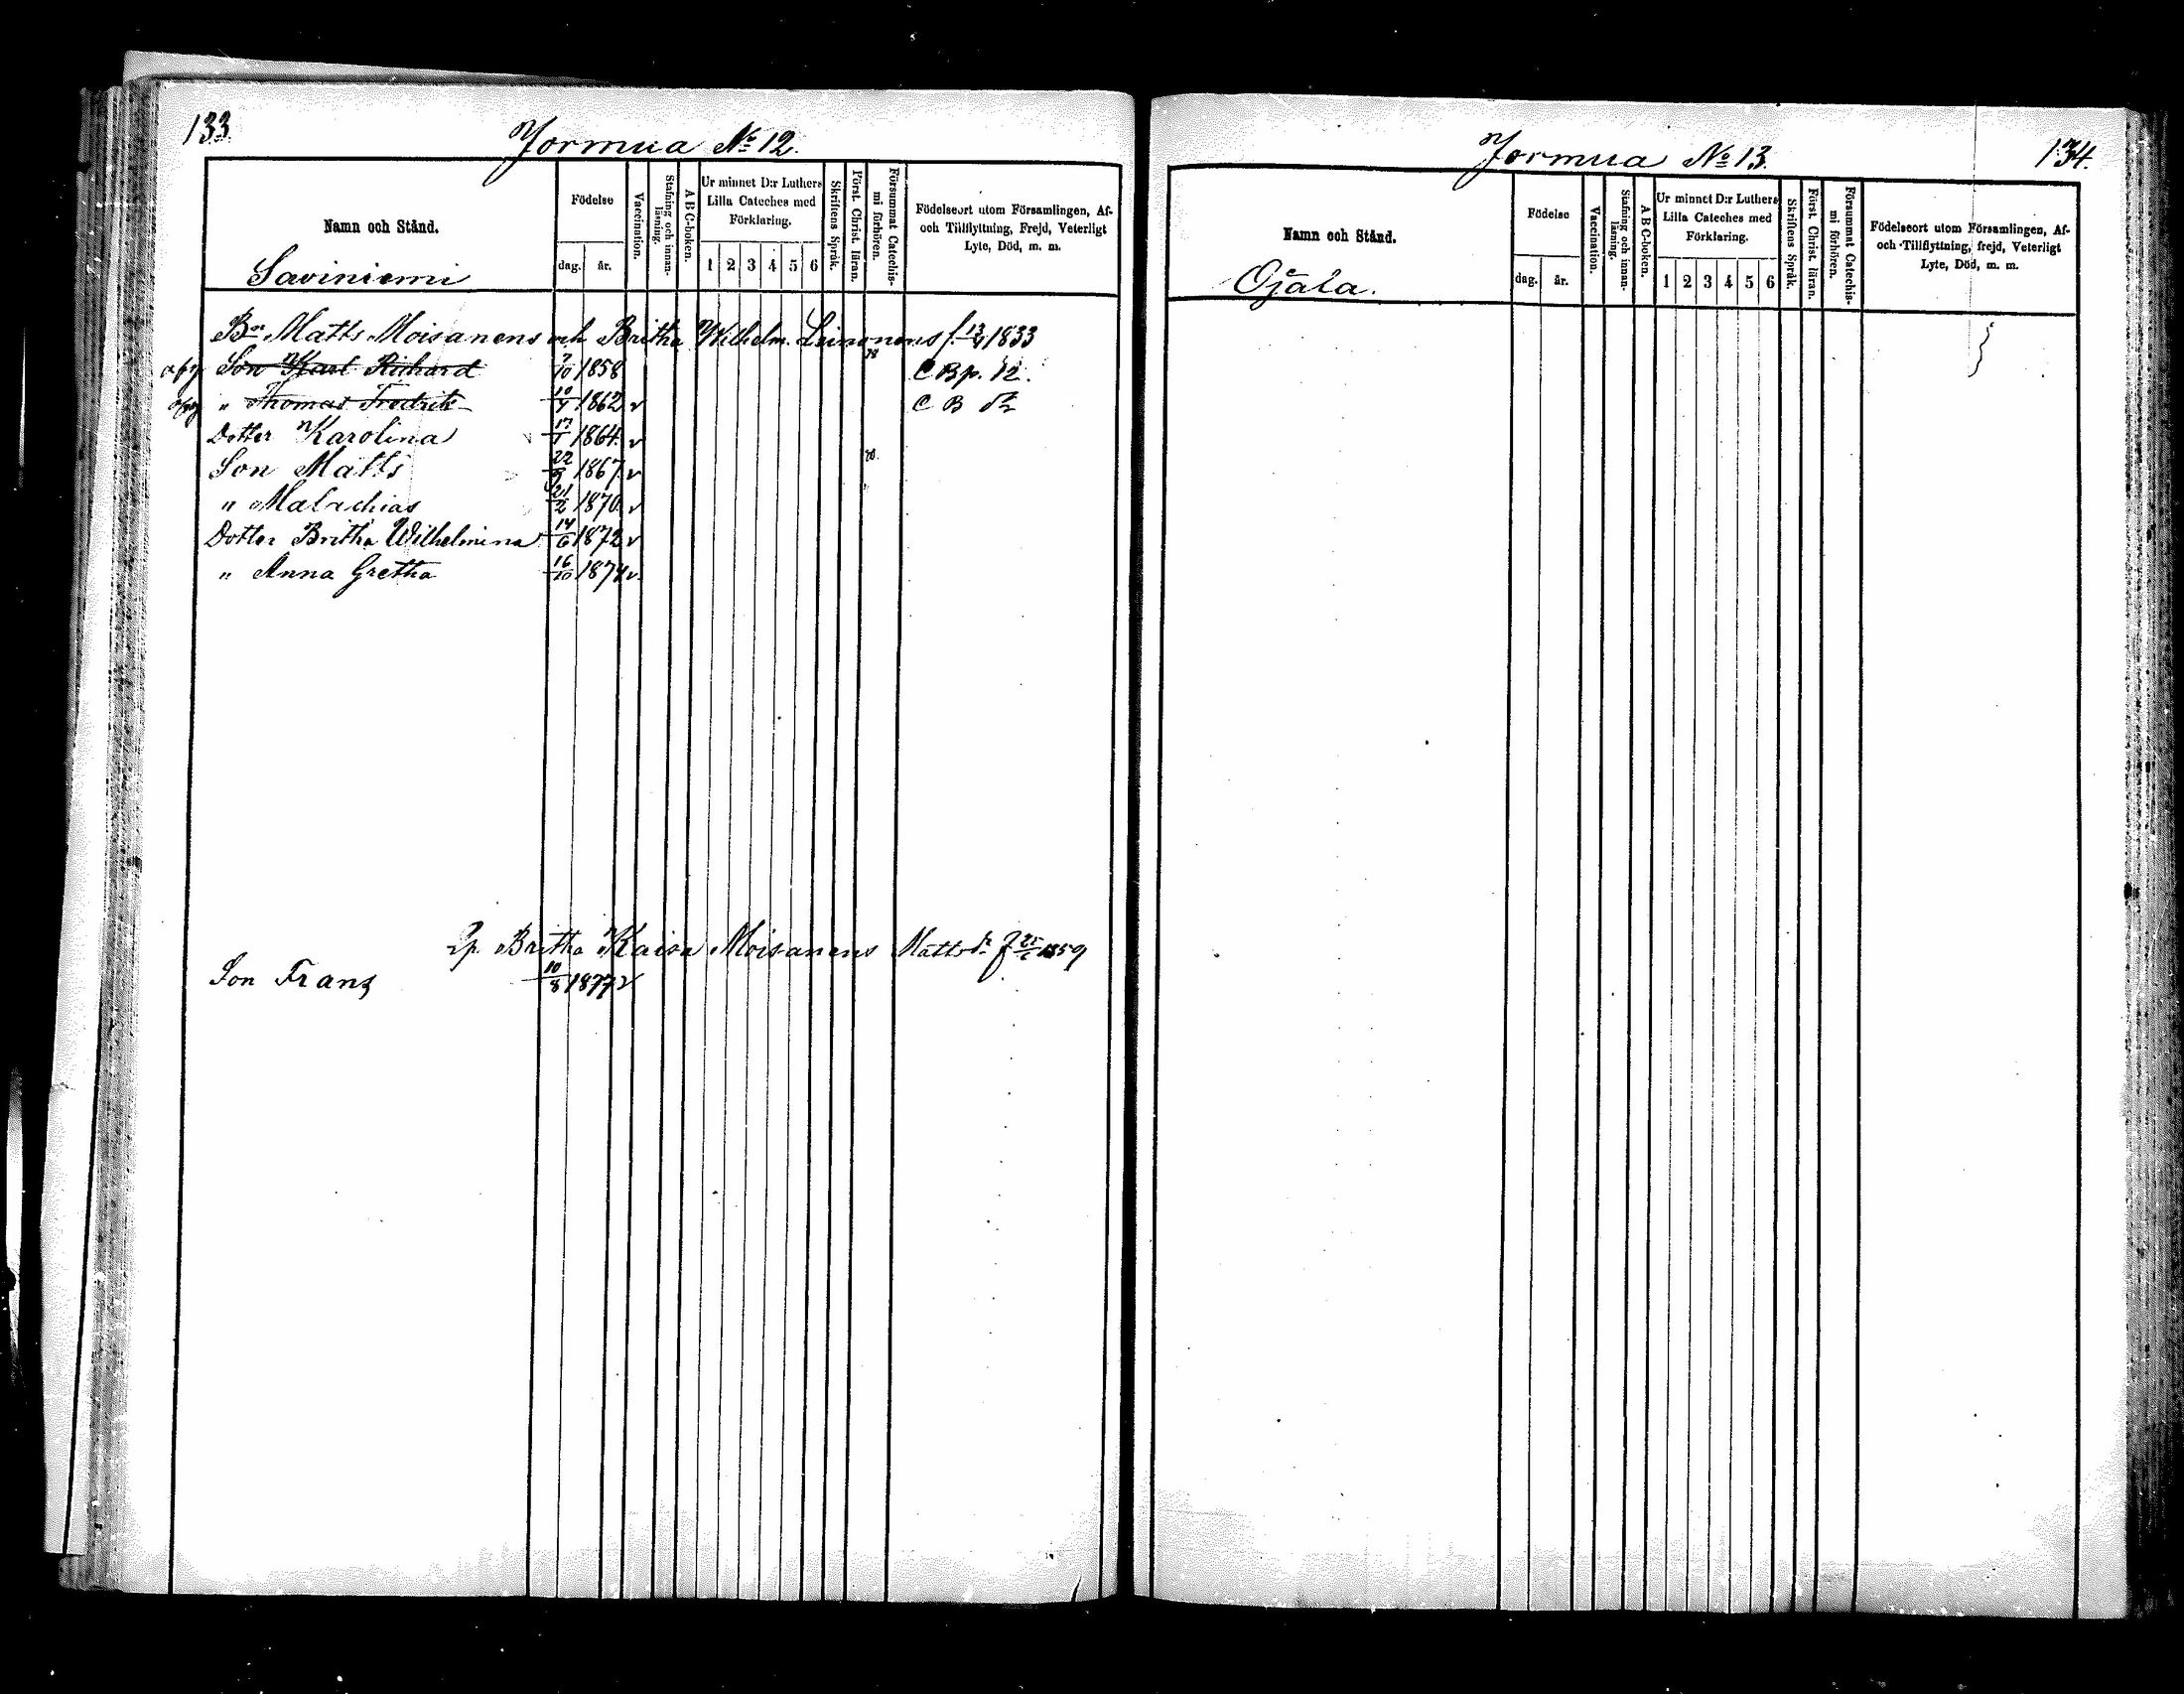 133
Jormua No 12.
Namn och Stånd.
Födelse
dag.
år.
Vaccination.
Stafning och innan-
läsning.
A B C-boken.
Ur minnet D:r Luthers
Lilla Cateches med
Förklaring.
1 2 3 4 5 6
Skriftens Språk.
Först. Christ. läran.
Försummat Catechis-
mi förhören.
Födelseort utom Församlingen, Af-
och Tillflyttning, Frejd, Veterligt
Lyte, Död, m. m.
Saviniemi
Bn Matts Moisanens och Britha Wilhelm. Leinonens f. 1833
Son Karl Richard 7/10 1858 C B p. 12.
" Thomas Fredrik 1862 v C B
Dotter Karolina 17/1 1864. v
Son Matts 22/9 1867. v
" Malachias 21/2 1870. v
Dotter Britha Wilhelmina 14/6 1872 v
" Anna Gretha 16/10 1874 v.
Britha Kaisa Moisanens Mattsdr f 1859
Son Franz 10/8 1877 v
Jormua No 13.
134.
Namn och Stånd.
Födelse
dag.
år.
Vaccination.
Stafning och innan-
läsning.
A B C-boken.
Ur minnet D:r Luthers
Lilla Cateches med
Förklaring.
1 2 3 4 5 6
Skriftens Språk.
Först. Christ. läran.
Försummat Catechis-
mi förhören.
Födelseort utom Församlingen, Af-
och Tillflyttning, frejd, Veterligt
Lyte, Död, m. m.
Ojala.